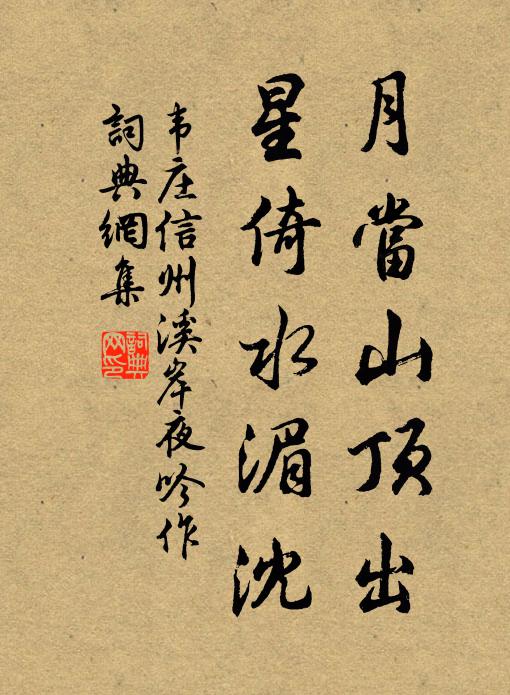 月當山頂出
星倚水湄沈
韦庄信州溪岸夜吟作
詞典網集
詞典网印